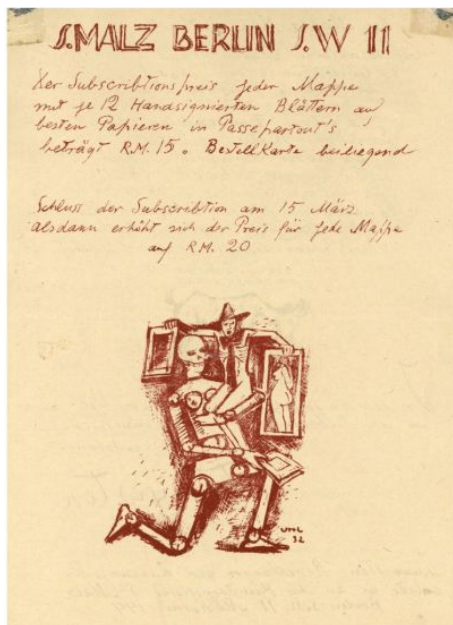 S.MALZ BERLIN S.W 11
Der Subscribtionspreis jeder Mappe
mit je 12 Handsignierten Blättern auf
besten Papieren in Passepartout's
beträgt R.M. 15. Bestellkarte beiliegend
Schluss der Subscribtion am 15 März.
alsdann erhöht sich der Preis für jede Mappe
auf R.M. 20
32